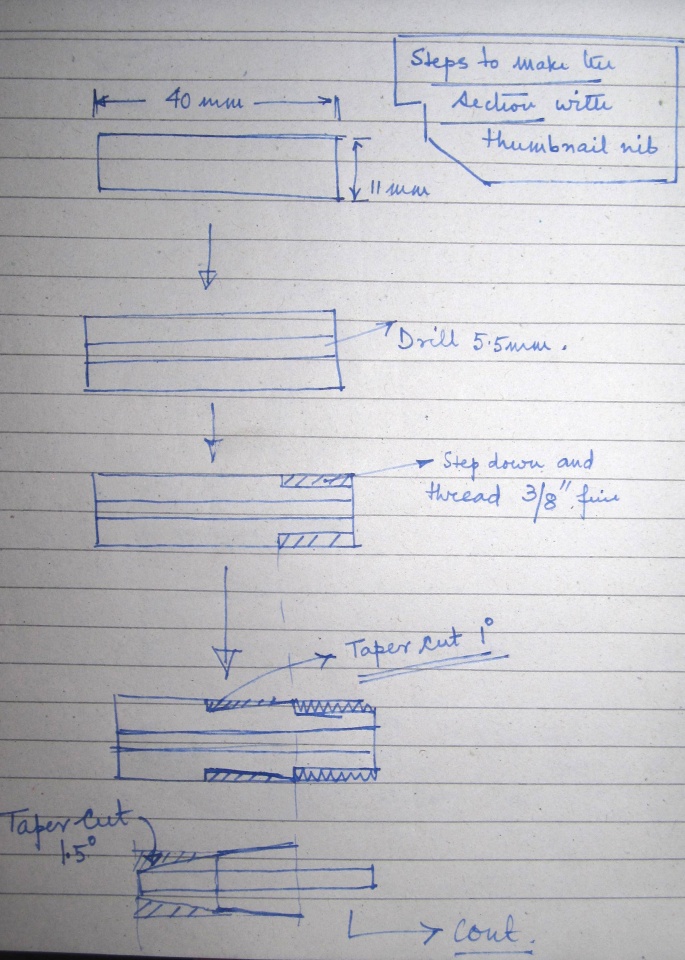 Steps to make the
section with
thumbnail nib
40 mm
11 mm
Drill 5.5mm.
Step down and
thread 3/8" fine
Taper cut 1°
Taper cut
1.5°
cont.